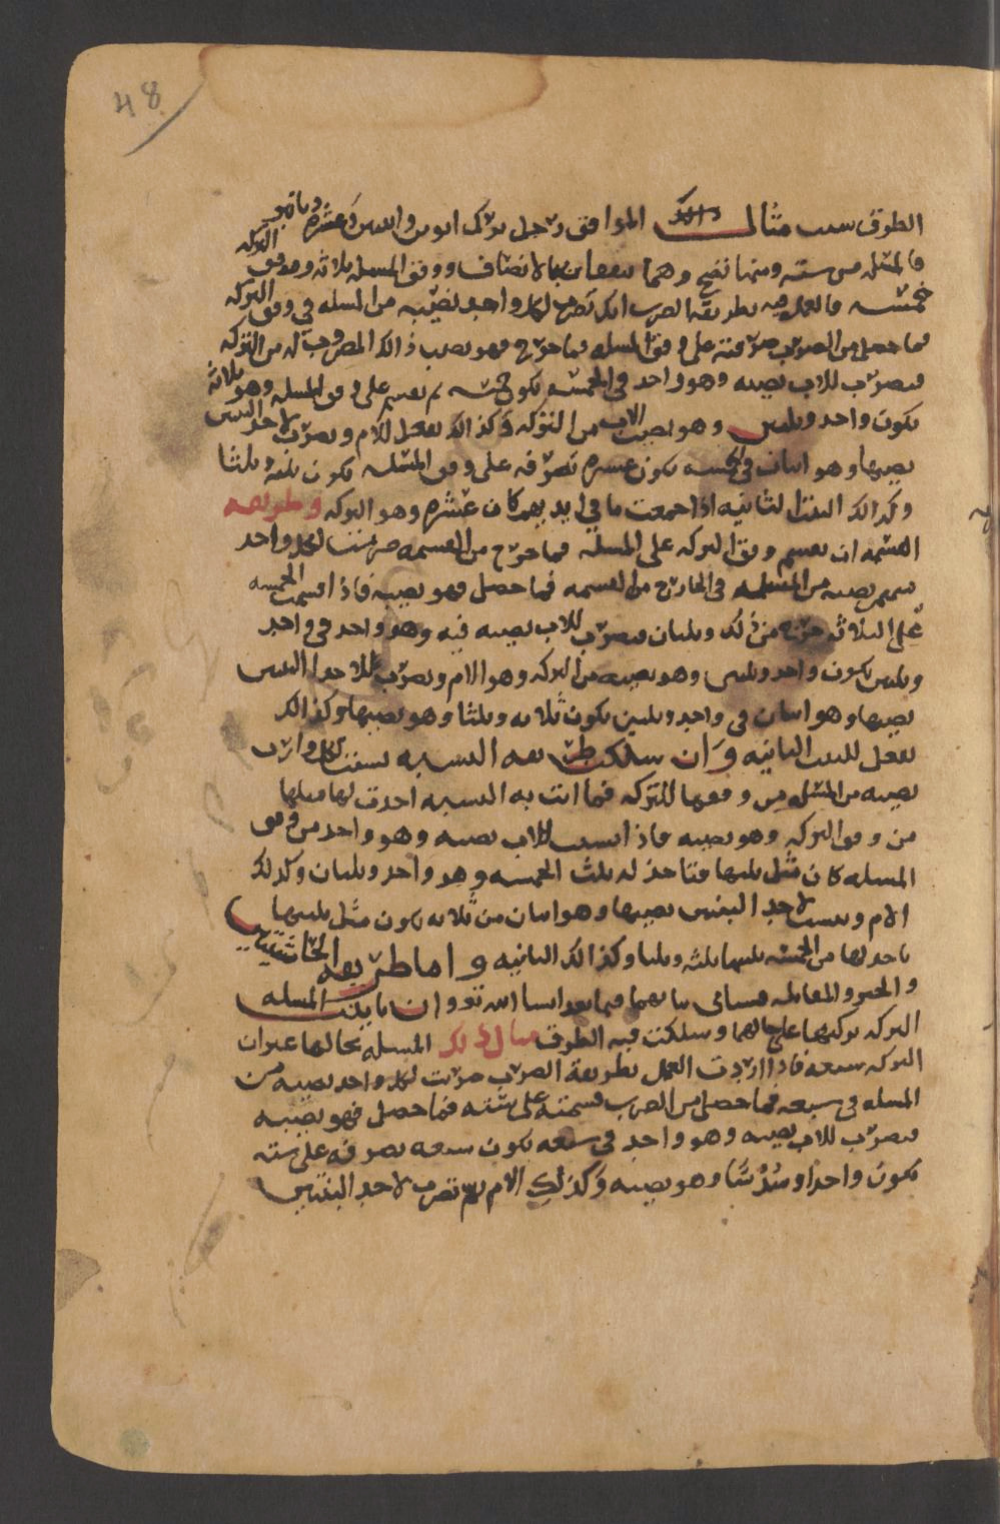 48
الطرق سب مثال ذلك الموافق رجل ترك ابوين وابنتين وعشره دنانير
فالمسله من ستة ومنها تصح وهما يتفقان بالانصاف ووفق المسله ثلاثه ووفق التركه
خمسه فالعمل فيه بطريقة الضرب انك تضرب لكل واحد نصيبه من المسله في وفق التركه
فما حصل من الضرب صرفته على وفق المسله فما خرج فهو نصيب ذالك المضروب له من التركه
فتضرب للاب نصيبه وهو واحد في الخمسه يكون خمسه ثم تقسم على وفق المسله وهو ثلاثه
يكون واحد وثلثين وهو نصيب الاب من التركه وكذالك تفعل للام وتضرب لاحد البنتين
نصيبها وهو اثنان في الخمسه يكون عشره تصرفه على وفق المسله يكون ثلثه وثلثا
وكذالك البنت الثانيه اذا جمعت ما في ايديهم كان عشره وهو التركه وطريقه
القسمه ان تقسم وفق التركه على المسلة فما خرج من القسمه ضربت لكل واحد
نصيبه من المسله في الخارج من القسمه فما حصل فهو نصيبه فاذا قسمت الخمسه
على الثلاثه خرج من ذلك وثلثان فتضرب للاب نصيبه فيه وهو واحد في واحد
وثلثين يكون واحد وثلثين وهو نصيبه من التركه وهو الام وتضرب للاحدا البنتين
نصيبها وهو اثنان في واحد وثلثين يكون ثلاثه وثلثا وهو نصيبها وكذالك
تفعل للبنت الثانيه وان سلكت طريقه النسبه نسبت لكل وارث
نصيبه من المسله من وفقها للتركه فما اتت به النسبه اخذت لها مثلها
من وفق التركه وهو نصيبه فاذا نسبت للاب نصيبه وهو واحد من وفق
المسله كان مثل ثلثها فتاخذ له ثلث الخمسه وهو واحد وثلثان وكذلك
الام وتنسب لاحد البنتين نصيبها وهو اثنان من ثلاثه يكون مثل ثلثيها
تاخذ لها من الخمسه ثلثيها ثلثه وثلثا وكذالك الثانيه واما طريقه
والجبر والمقابله فسياتي بيانهما فيما بعد انشا الله تع وان باينت المسله
التركه تركتها على حالهما وسلكت فيه الطرق مثال ذلك المسله بحالها غير ان
التركه سبعه فاذا اردت العمل بطريقة الضرب ضربت لكل واحد نصيبه من
المسله في سبعه فما حصل من الضرب قسمته على سته فما حصل فهو نصيبه
فتضرب للاب نصيبه وهو واحد في سبعه يكون سبعه تصرفه على سته
يكون واحدا وسدسا وهو نصيبه وكذلك الام ثم تضرب لاحد البنتين